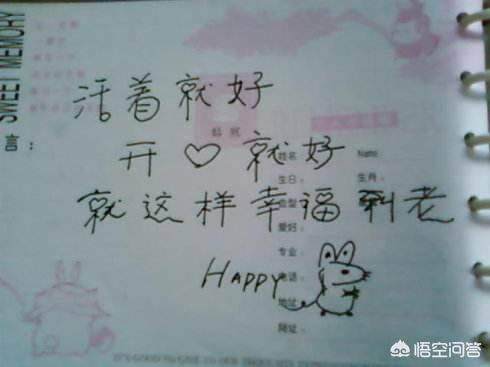 SWEET MEMORY
言：
活着就好
开♡就好
就这样幸福到老
Happy
贴照
姓名 Name
生日： 生肖：
血型
爱好：
专业：
电话：
地址
网址：
悟空问答